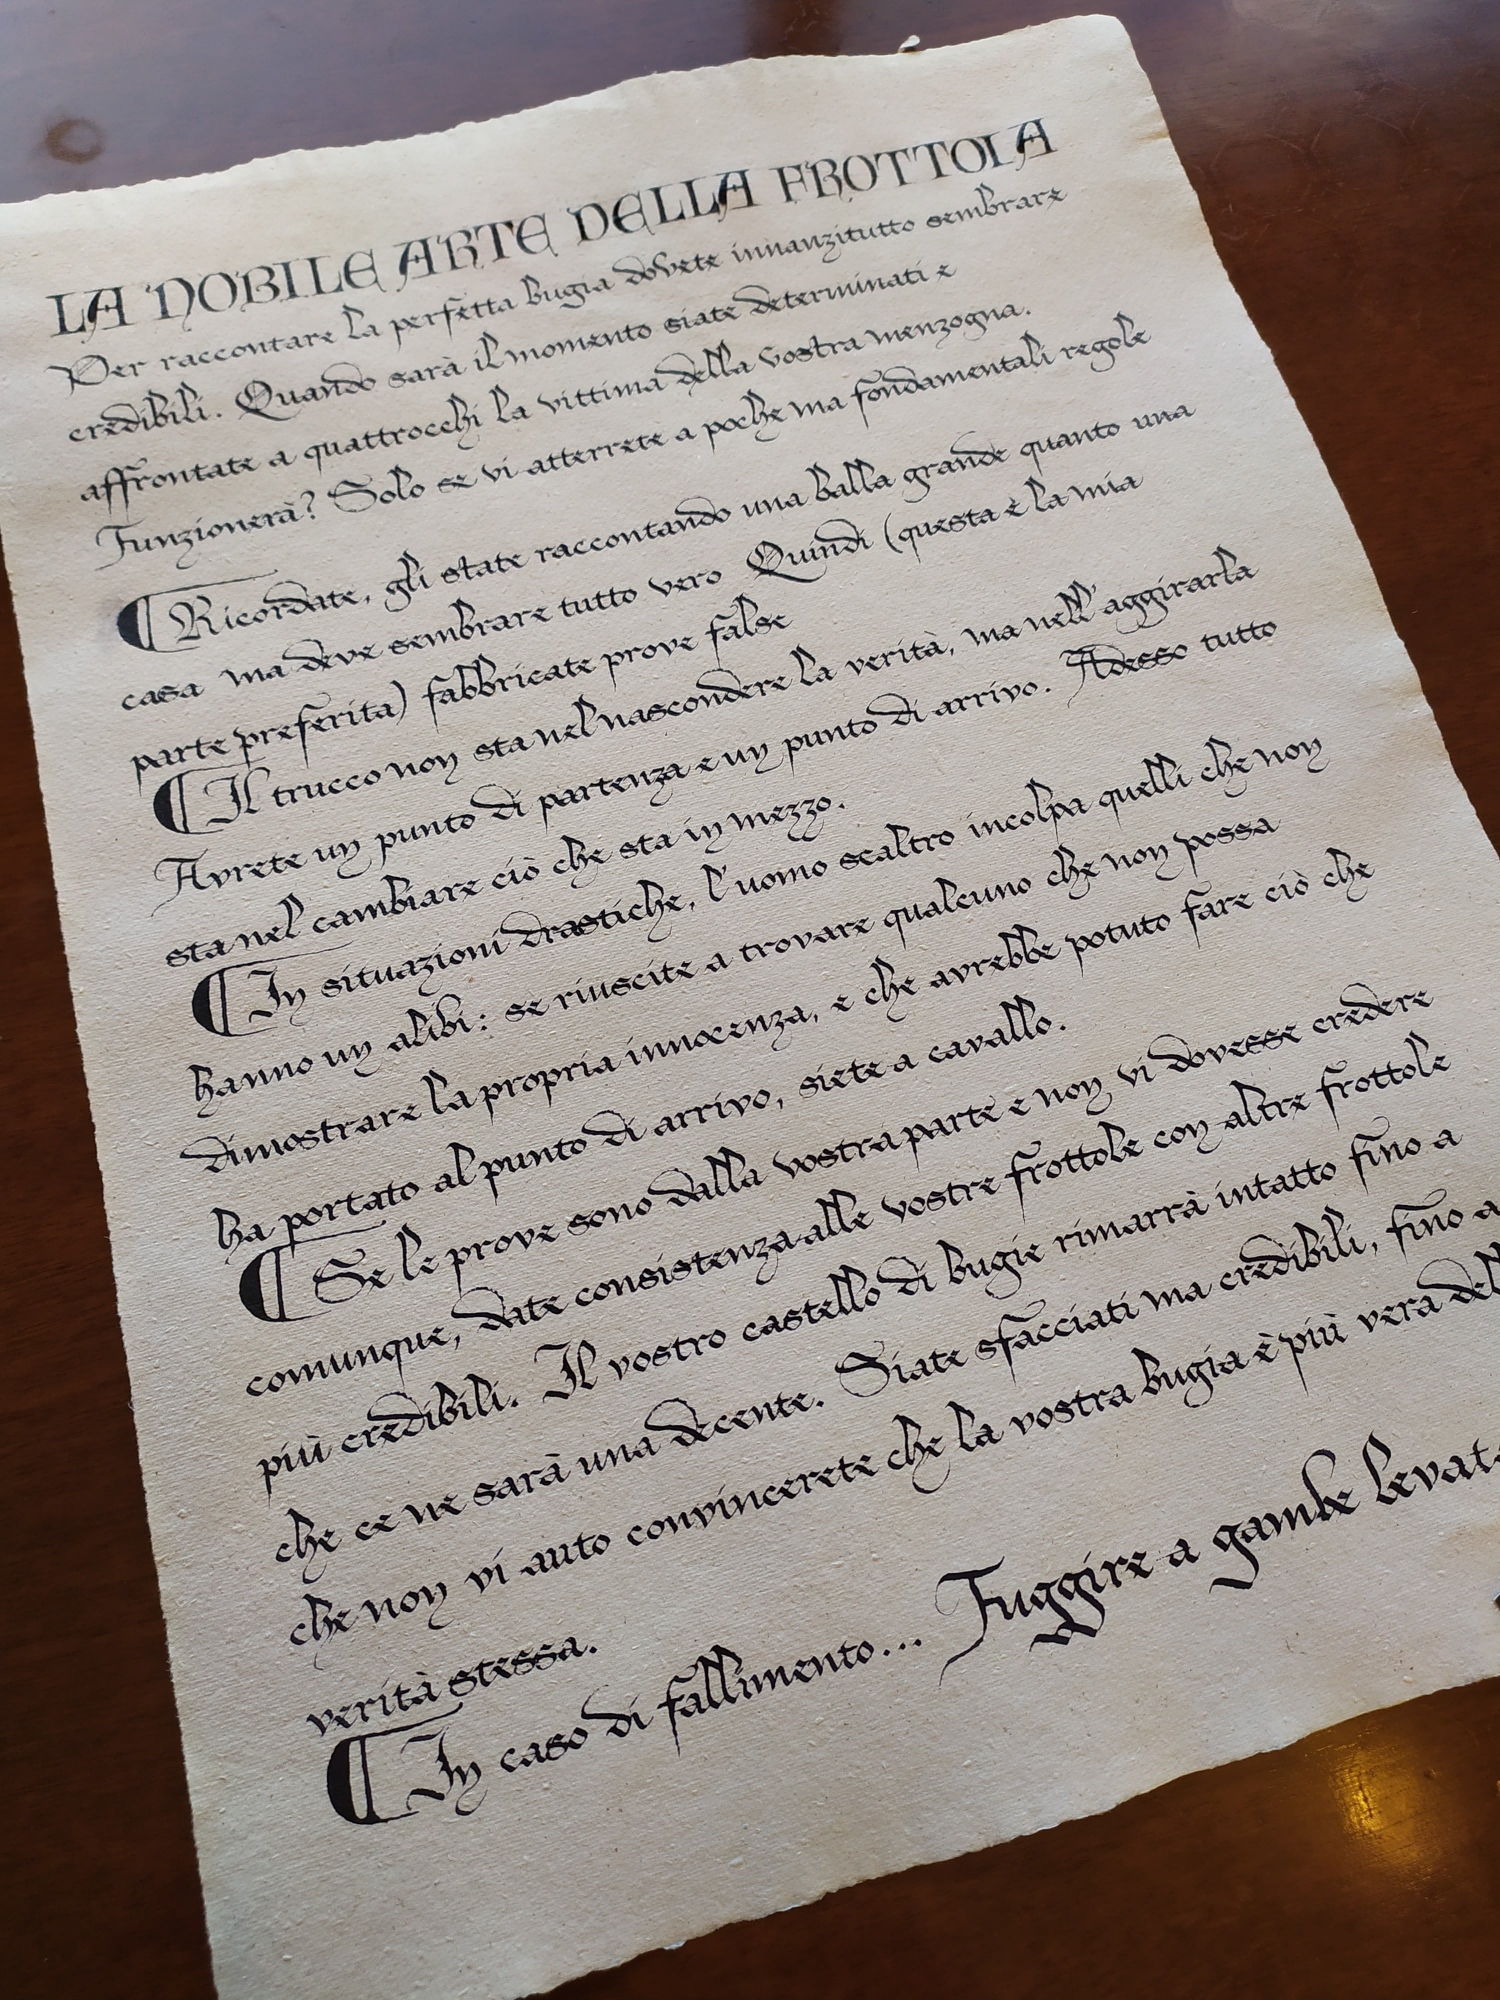 LA NOBILE ARTE DELLA FROTTOLA
Per raccontare la perfetta bugia dovete innanzitutto sembrare
credibili. Quando sarà il momento siate determinati e
affrontate a quattrocchi la vittima della vostra menzogna.
Funzionerà? Solo se vi atterrete a poche ma fondamentali regole
Ricordate, gli state raccontando una balla grande quanto una
casa ma deve sembrare tutto vero Quindi (questa è la mia
parte preferita) fabbricate prove false
Il trucco non sta nel nascondere la verità, ma nell'aggirarla
Avrete un punto di partenza e un punto di arrivo. Adesso tutto
sta nel cambiare ciò che sta in mezzo.
In situazioni drastiche, l'uomo scaltro incolpa quelli che non
hanno un alibi: se riuscite a trovare qualcuno che non possa
dimostrare la propria innocenza, e che avrebbe potuto fare ciò che
ha portato al punto di arrivo, siete a cavallo.
Se le prove sono dalla vostra parte e non vi dovesse credere
comunque, date consistenza alle vostre frottole con altre frottole
più credibili. Il vostro castello di bugie rimarrà intatto fino a
che ce ne sarà una decente. Siate sfacciati ma credibili, fino a
che non vi auto convincerete che la vostra bugia è più vera del
verità stessa.
In caso di fallimento... Fuggire a gambe levate